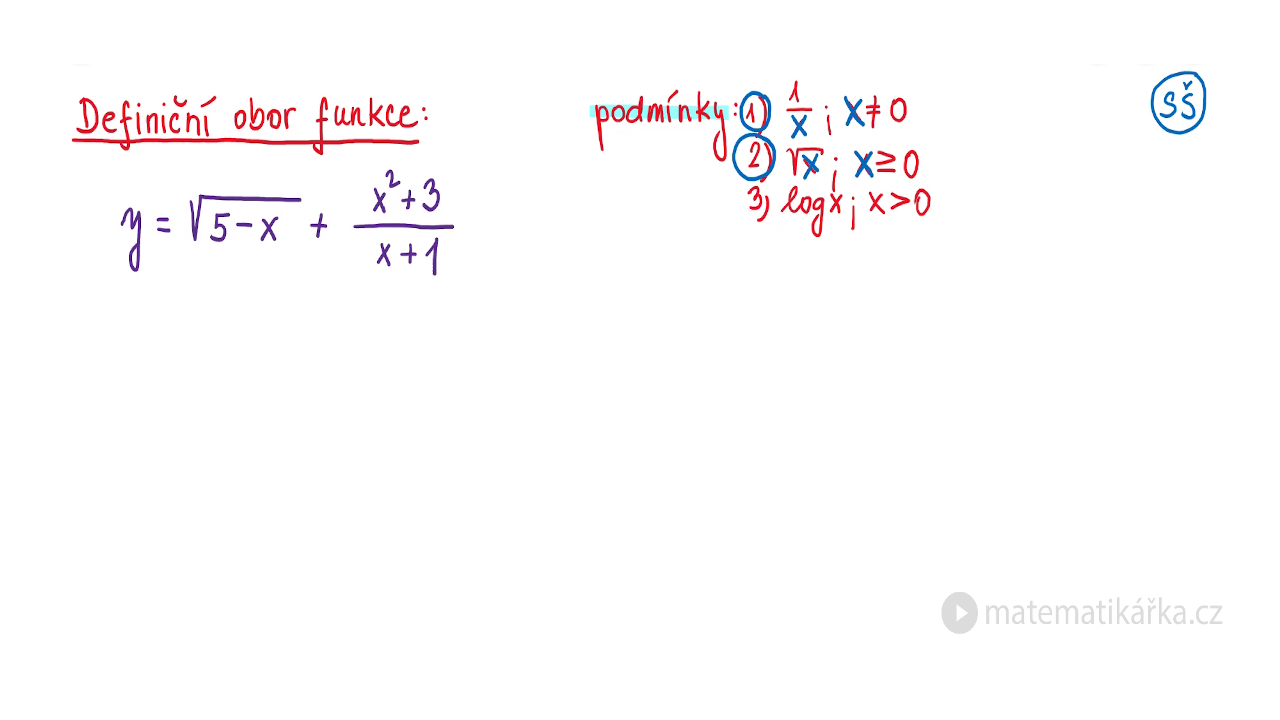 Definiční obor funkce:
y = √5-x + x²+3 / x+1
podmínky: 1) 1/x ; x ≠ 0
2) √x ; x ≥ 0
3) log x ; x > 0
SŠ
matematikářka.cz